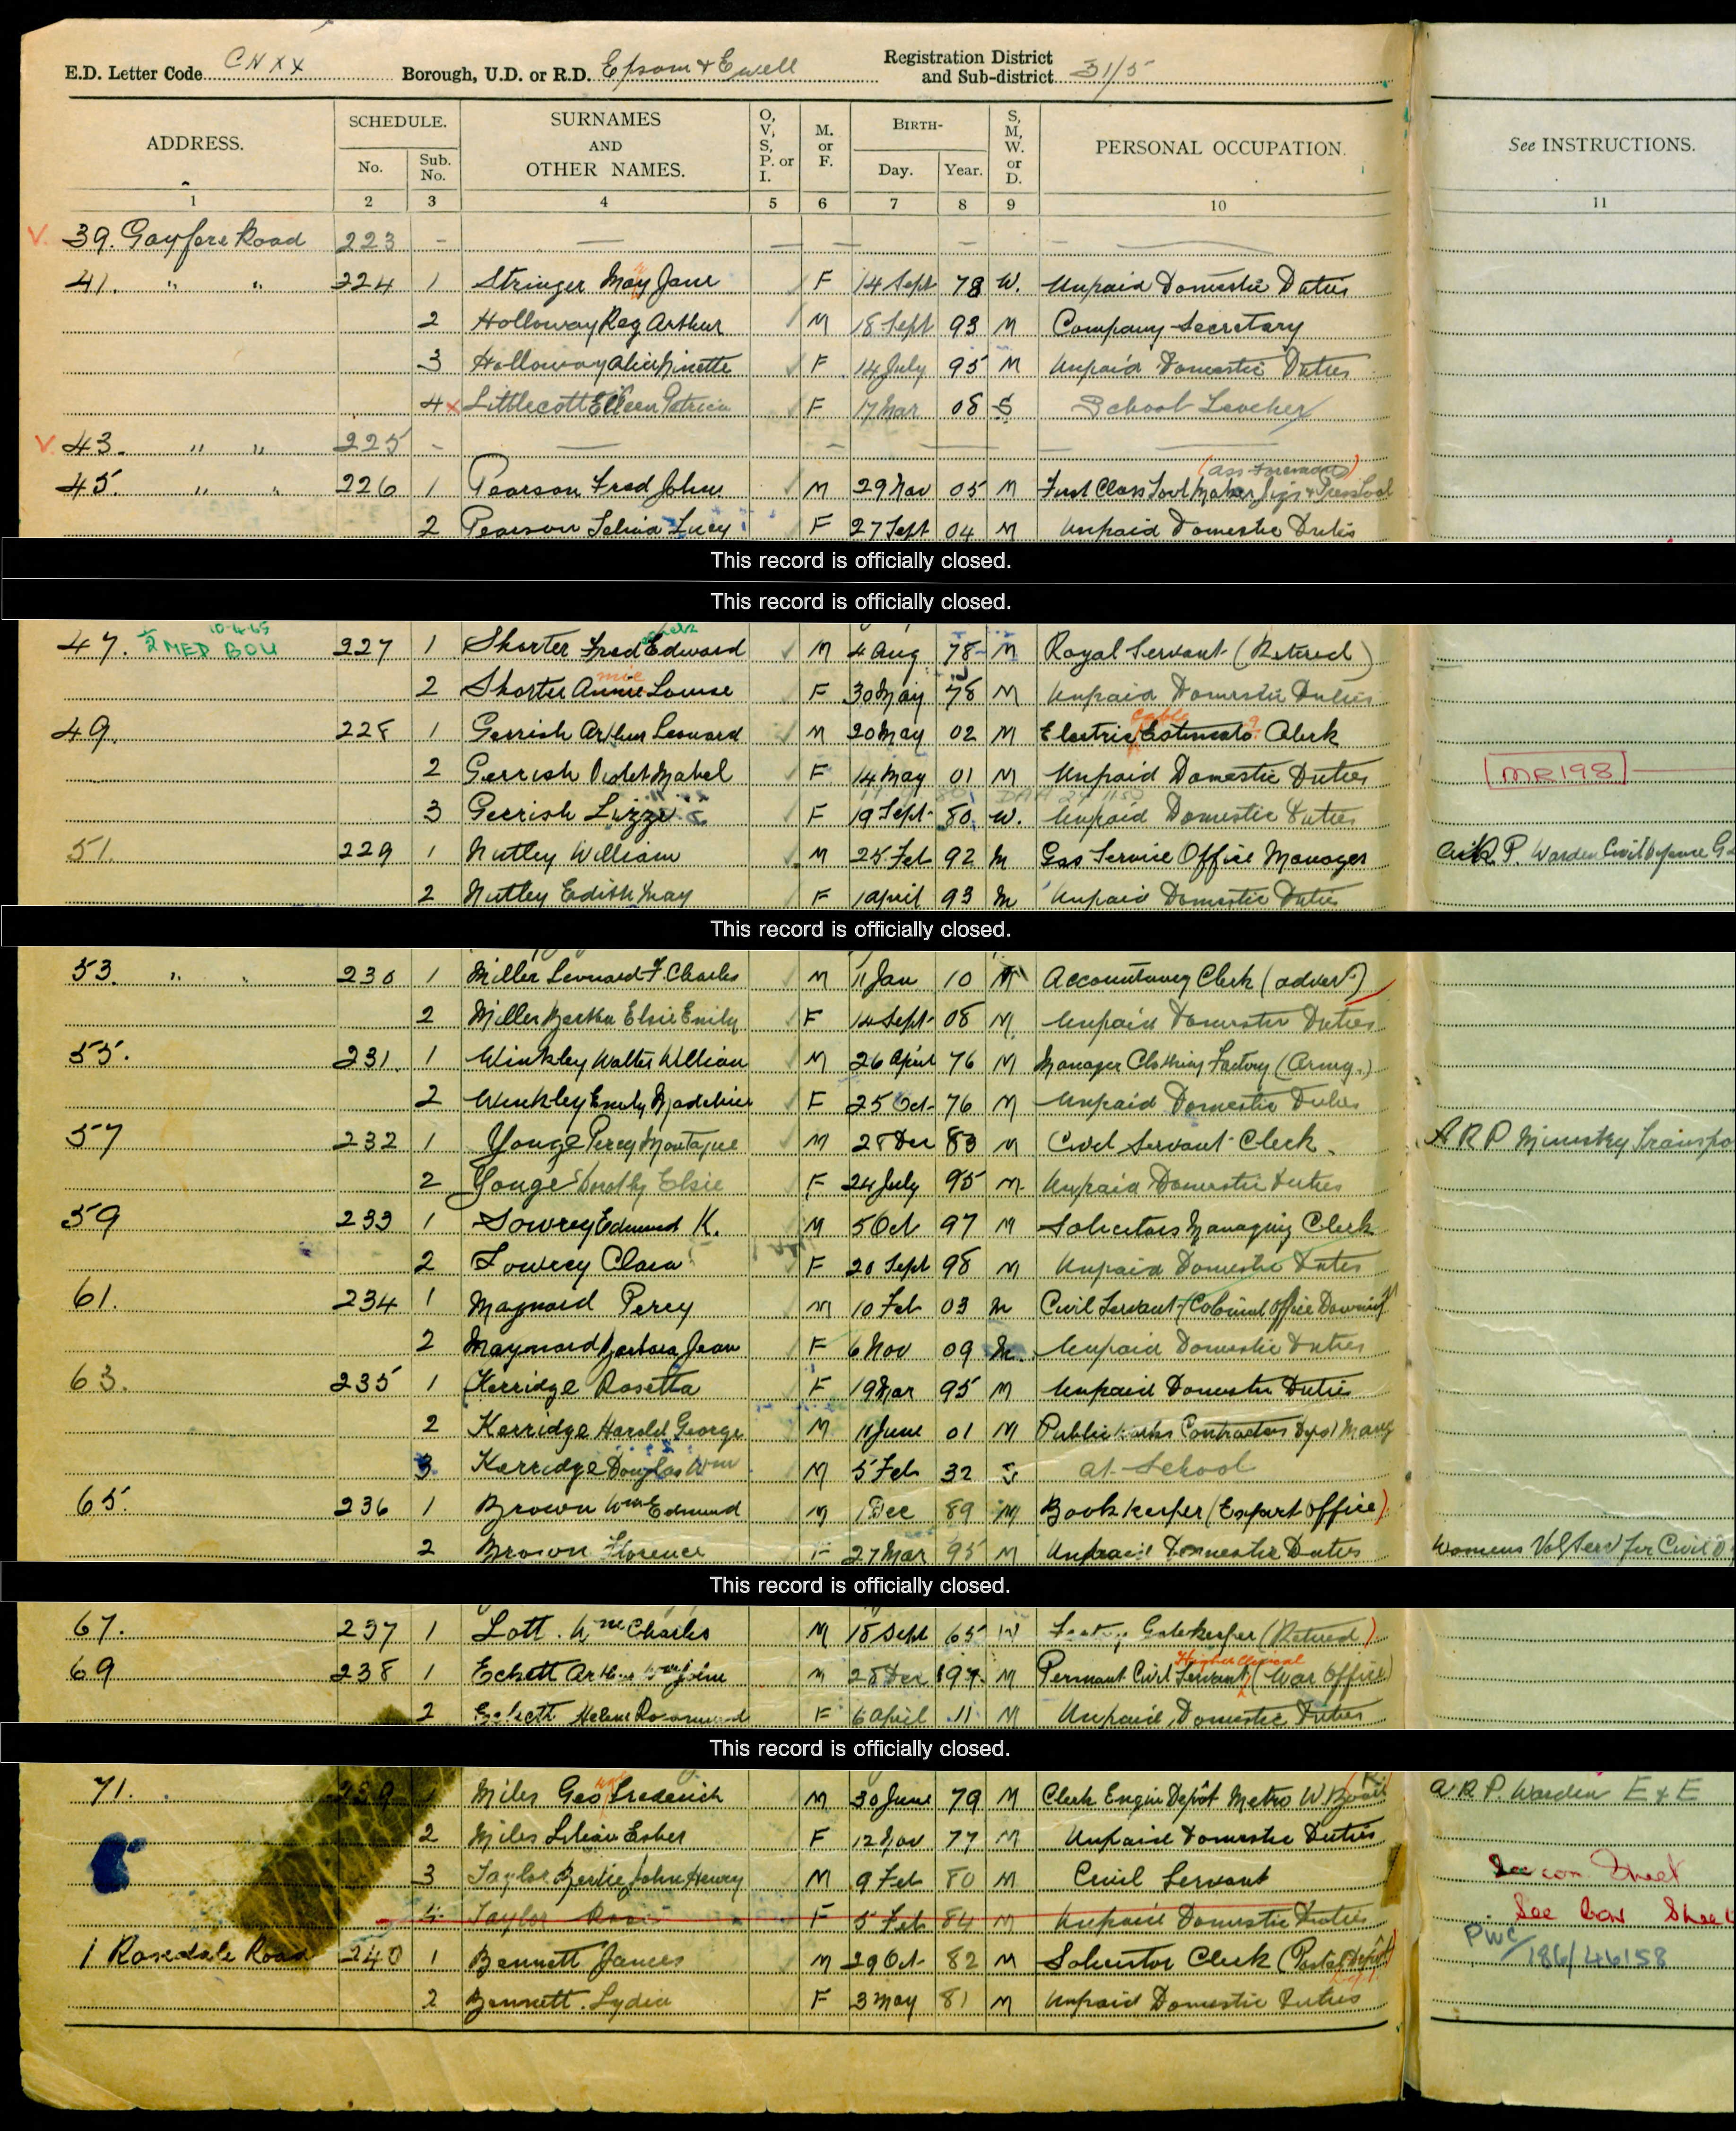 E.D. Letter Code CNXX Borough, U.D. or R.D. Epsom & Ewell Registration District and Sub-district 31/5
ADDRESS. SCHEDULE. No. Sub. No. SURNAMES AND OTHER NAMES. O, V, S, P. or I. M. or F. BIRTH- Day. Year. S, M, W. or D. PERSONAL OCCUPATION. See INSTRUCTIONS.
1 2 3 4 5 6 7 8 9 10 11
V 39. Gayfere Road 223 - — — — — — —
41. " " 224 1 Stringer May Jane F 14 Sept 78 W. Unpaid Domestic Duties
2 Holloway Reg Arthur M 18 Sept 93 M Company Secretary
3 Holloway Alice Ninette F 14 July 95 M Unpaid Domestic Duties
4 x Littlecott Eileen Patricia F 17 Mar 08 S School Teacher
V 43. " " 225 - — — — — —
(Ass Foreman)
45. " " 226 1 Pearson Fred John M 29 Nov 05 M First Class Tool Maker Jigs & Press Tool
2 Pearson Selina Lucy F 27 Sept 04 M Unpaid Domestic Duties
This record is officially closed.
This record is officially closed.
10-4-65
47. ½ MED BOU 227 1 Shorter Fred Edward M 4 Aug 78 M Royal Servant (Retired)
mie
2 Shorter Annie Louise F 30 May 78 M Unpaid Domestic Duties
Cable
49. 228 1 Gerrish Arthur Leonard M 20 May 02 M Electric Estimato Clerk
2 Gerrish Violet Mabel F 14 May 01 M Unpaid Domestic Duties [MR198]
3 Gerrish Lizzie F 19 Sept 80 W. Unpaid Domestic Duties
51. 229 1 Nutley William M 25 Feb 92 M Gas Service Office Manager P. Warden Civil Defence
2 Nutley Edith May F 1 April 93 M Unpaid Domestic Duties
This record is officially closed.
53. " " 230 1 Miller Leonard F. Charles M 11 Jan 10 M Accountancy Clerk (advert)
2 Miller Bertha Elsie Emily F 14 Sept 08 M. Unpaid Domestic Duties
55. 231. 1 Winkley Walter William M 26 April 76 M Manager Clothing Factory (Army.)
2 Winkley Emily Madeline F 25 Oct 76 M Unpaid Domestic Duties
57 232 1 Yonge Percy Montague M 28 Dec 83 M Civil Servant Clerk. A R P Ministry Transpo
2 Yonge Dorothy Elsie F 24 July 95 M Unpaid Domestic Duties
59 233 1 Sowrey Edmund K. M 5 Oct 97 M Solicitors Managing Clerk
2 Sowrey Clara F 20 Sept 98 M Unpaid Domestic Duties
61. 234 1 Maynard Percy M 10 Feb 03 M Civil Servant (Colonial Office Downing St
2 Maynard Barbara Jean F 6 Nov 09 M. Unpaid Domestic Duties
63. 235 1 Kerridge Rosetta F 19 Mar 95 M Unpaid Domestic Duties
2 Kerridge Harold George M 11 June 01 M Public Works Contractors Depot Mang
3 Kerridge Douglas Wm M 5 Feb 32 S at School
65. 236 1 Brown Wm Edmund M 1 Dec 89 M Book keeper (Export Office)
2 Brown Florence F 27 Mar 95 M Unpaid Domestic Duties Womens Vol Serv for Civil D
This record is officially closed.
67. 237 1 Lott. Wm Charles M 18 Sept 65 W Gatekeeper (Retired)
Higher Clerical
69 238 1 Eckett Arthur Wm John M 28 Dec 97 M Permant Civil Servant (War Office)
2 Eckett Helene Rosamund F 6 April 11 M Unpaid Domestic Duties
This record is officially closed.
71. 239 1 Miles Geo Frederick M 30 June 79 M Clerk Engin Depôt Metro W Board A R P. Warden E & E
2 Miles Lilian Esher F 12 Nov 77 M Unpaid Domestic Duties
3 Taylor Bertie John Henry M 9 Feb 80 M Civil Servant See con Sheet
4 Taylor Rose F 5 Feb 84 M Unpaid Domestic Duties See Con Sheet
1 Rosedale Road 240 1 Bennett James M 29 Oct 82 M Solicitor Clerk (Postal Dept) PWC/186/46158
2 Bennett. Lydia F 3 May 81 M Unpaid Domestic Duties